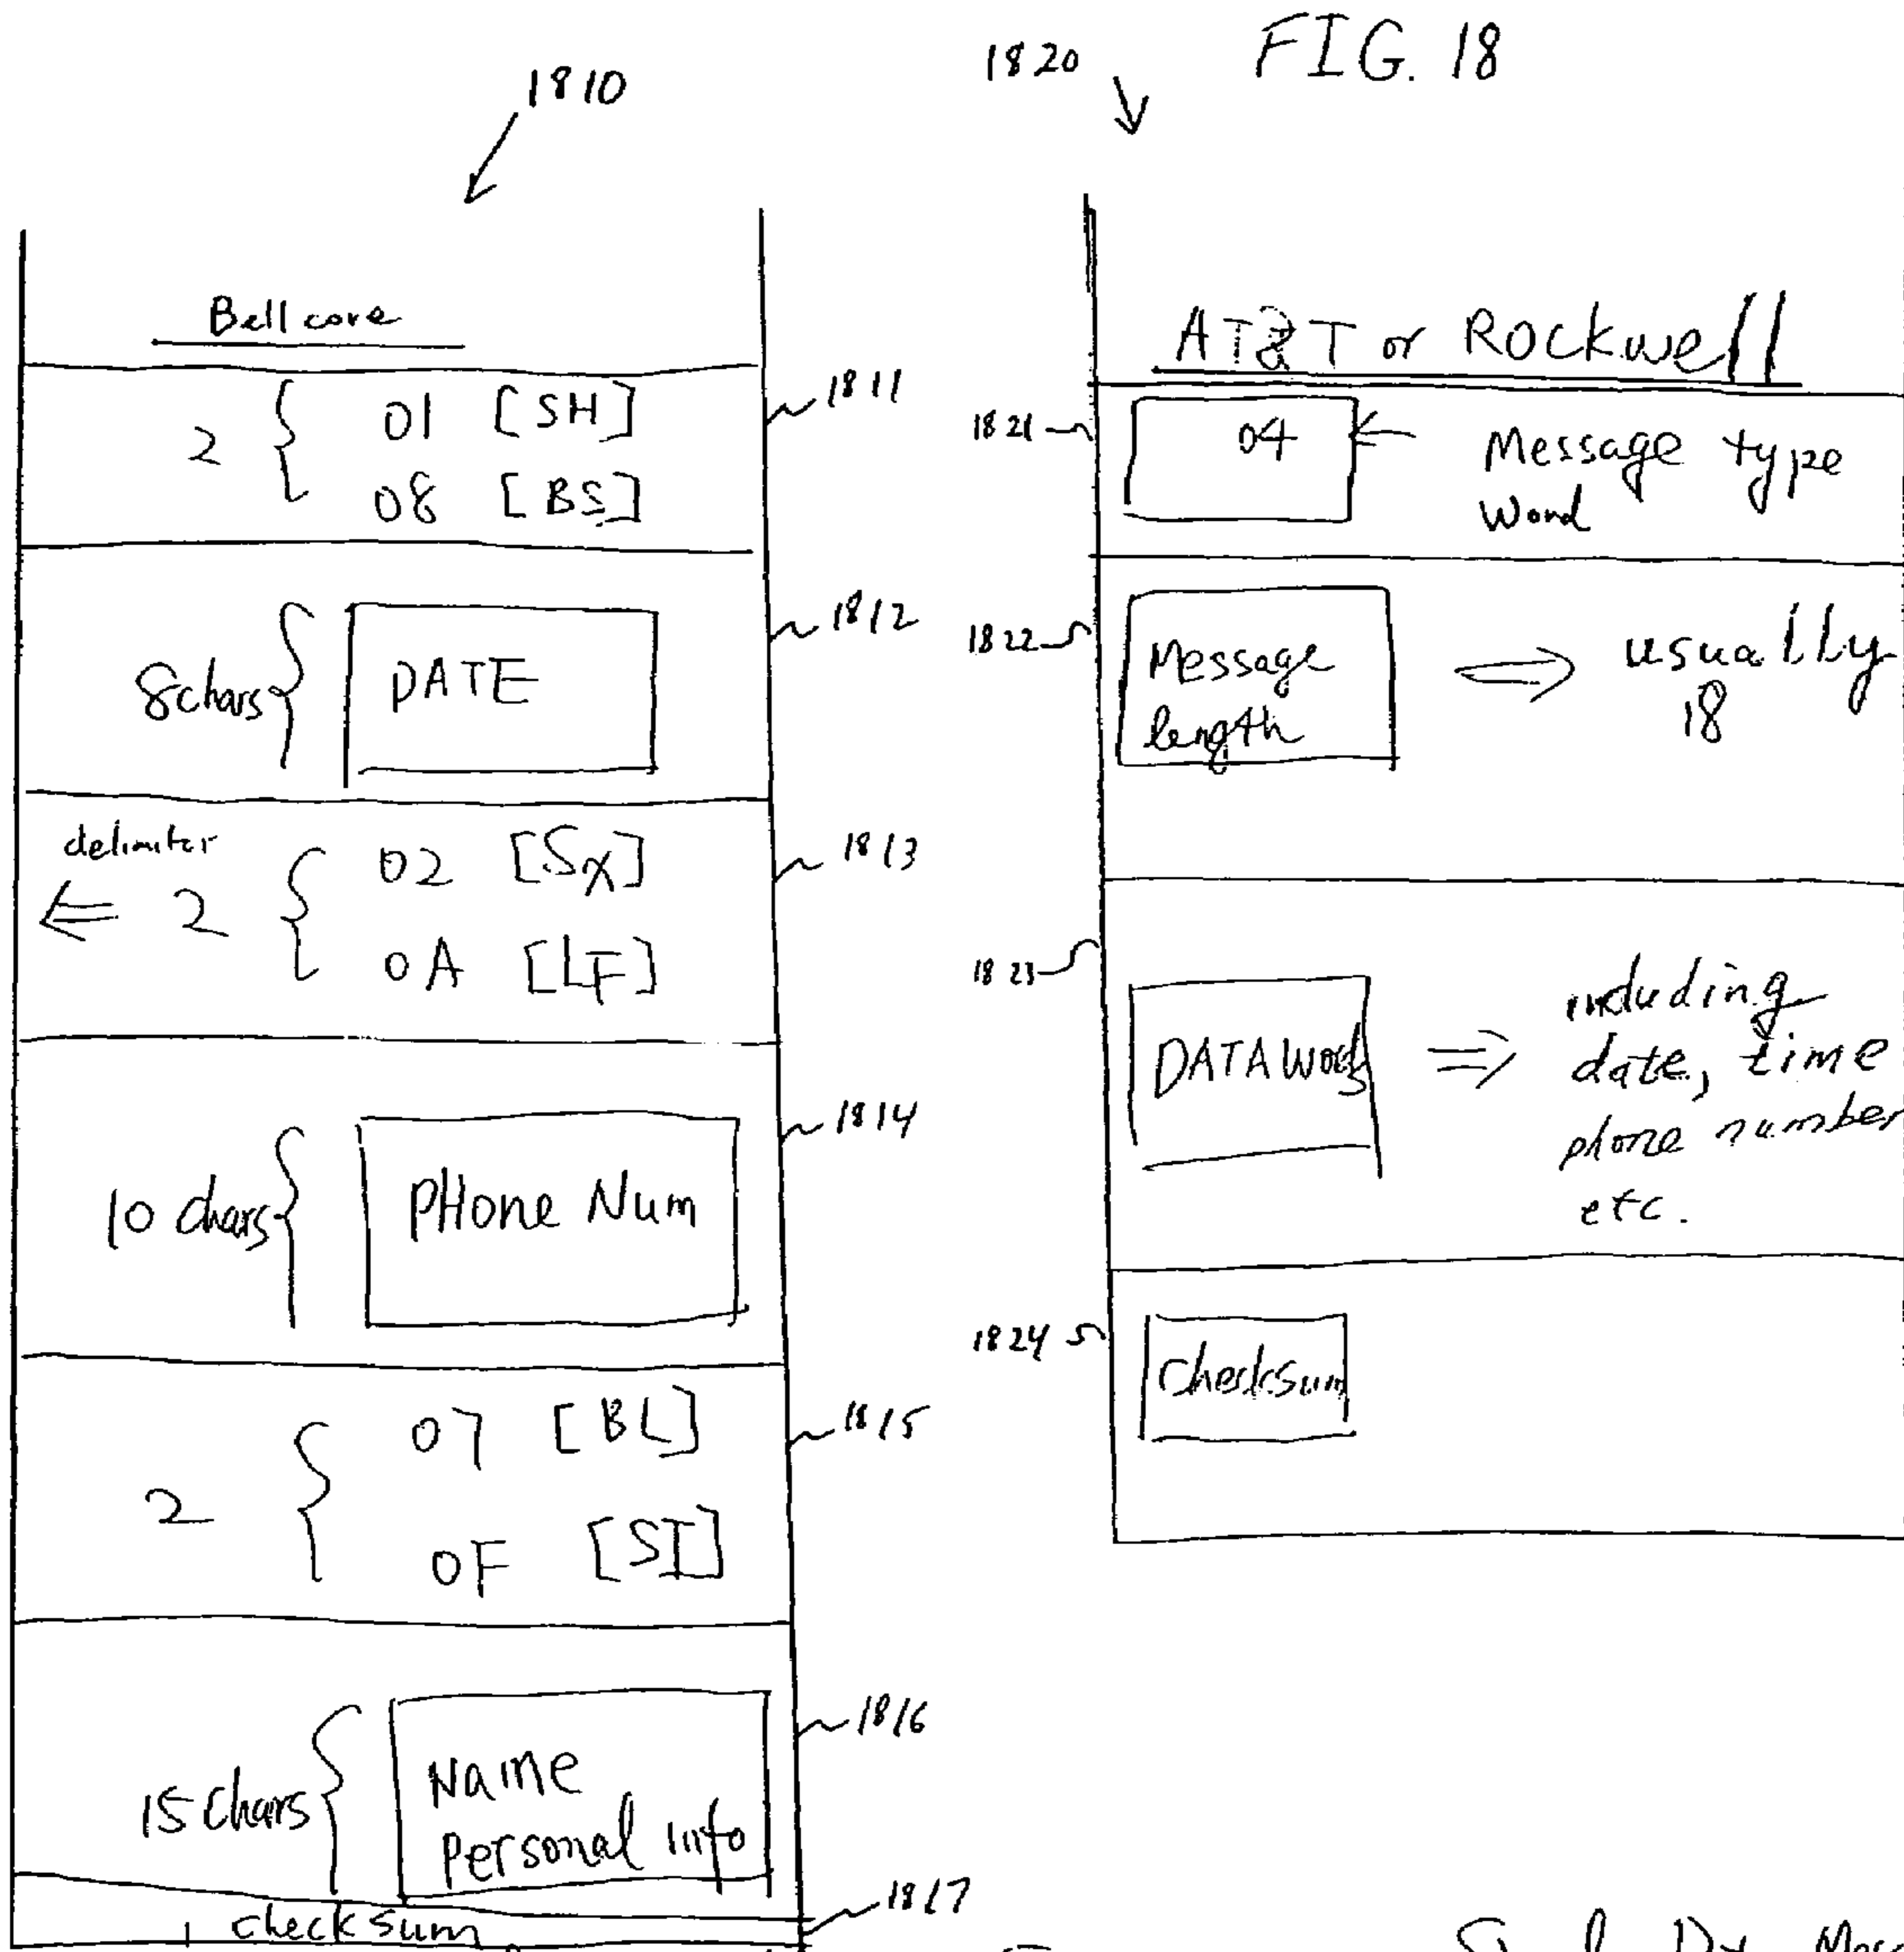 FIG. 18
1810
1820
Bellcore
2 { 01 [SH]
08 [BS]
1811
8 chars { DATE
1812
delimiter
⇐ 2 { 02 [SX]
0A [LF]
1813
10 chars { PHone Num
1814
2 { 07 [BL]
0F [SI]
1815
15 chars { Name
Personal Info
1816
1 checksum
1817
AT&T or Rockwell
1821
04 ← Message type
Word
1822
Message
length
⇒ usually
18
1823
DATA Word ⇒ including
date, time
phone number
etc.
1824
checksum